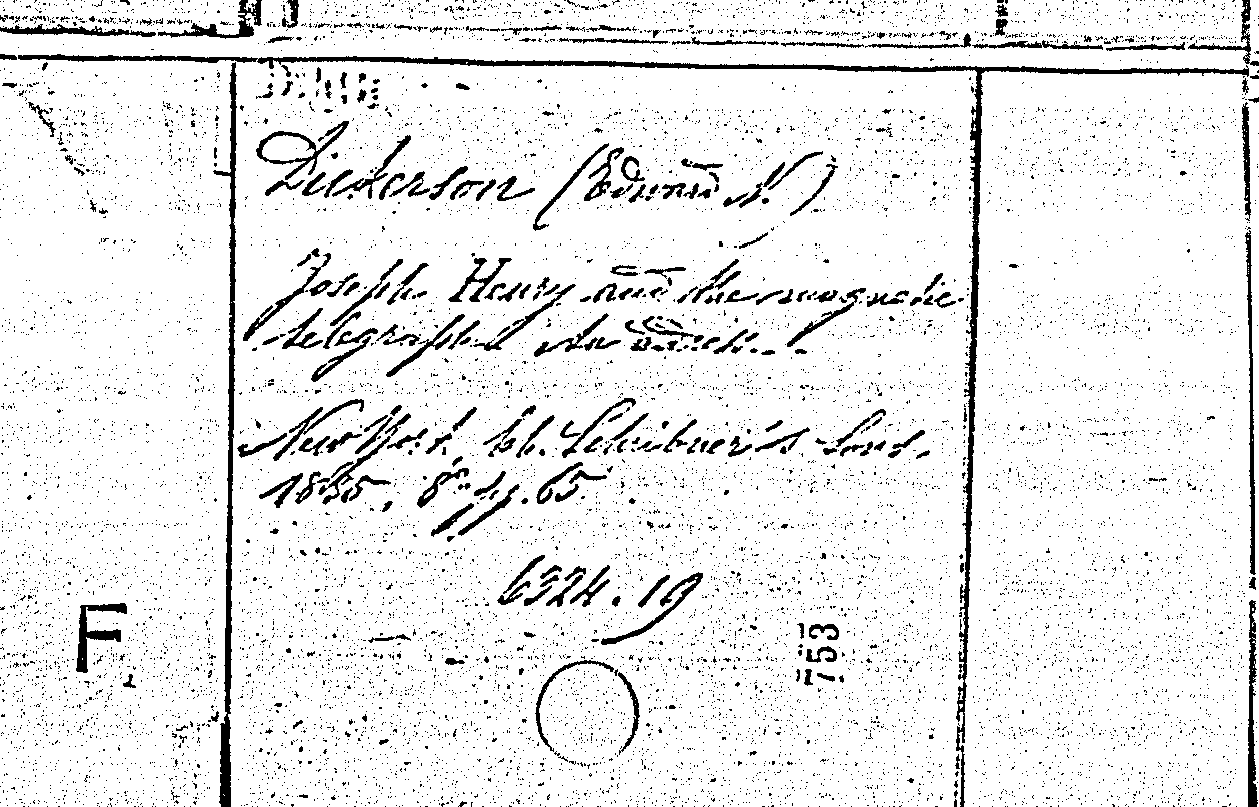 Dickerson (Edward N.)
Joseph Henry and the magnetic
telegraph. An address...
New York, Ch. Scribner's Sons.
1885. 8° pp. 65
6324.19
753
F